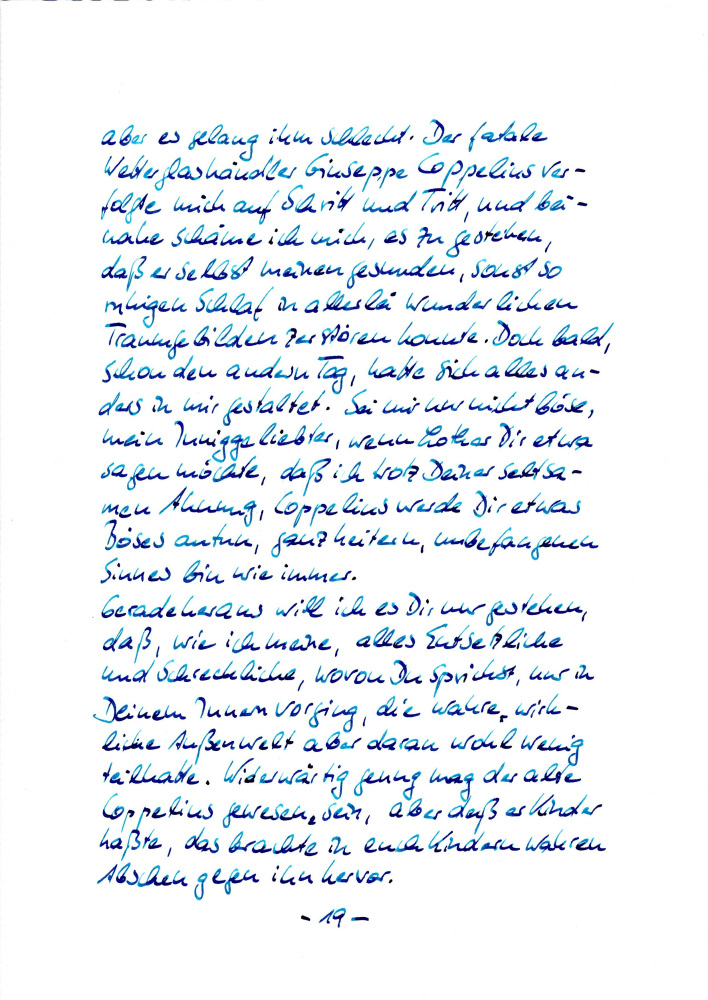 aber es gelang ihm schlecht. Der fatale
Wetterglashändler Giuseppe Coppelius ver-
folgte mich auf Schritt und Tritt, und bei-
nahe schäme ich mich, es zu gestehen,
daß er selbst meinen gesunden, sonst so
ruhigen Schlaf in allerlei wunderlichen
Traumgebilden zerstören konnte. Doch bald,
schon den andern Tag, hatte sich alles an-
ders in mir gestaltet. Sei mir nur nicht böse,
mein Inniggeliebter, wenn Lothar Dir etwa
sagen möchte, daß ich trotz Deiner seltsa-
men Ahnung, Coppelius werde Dir etwas
Böses antun, ganz heitern, unbefangenen
Sinnes bin wie immer.
Geradeheraus will ich es Dir nur gestehen,
daß, wie ich meine, alles Entsetzliche
und Schreckliche, wovon Du sprichst, nur in
Deinem Innern vorging, die wahre, wirk-
liche Außenwelt aber daran wohl wenig
teilhatte. Widerwärtig genug mag der alte
Coppelius gewesen sein, aber daß er Kinder
haßte, das brachte in euch Kindern wahren
Abscheu gegen ihn hervor.
- 19 -